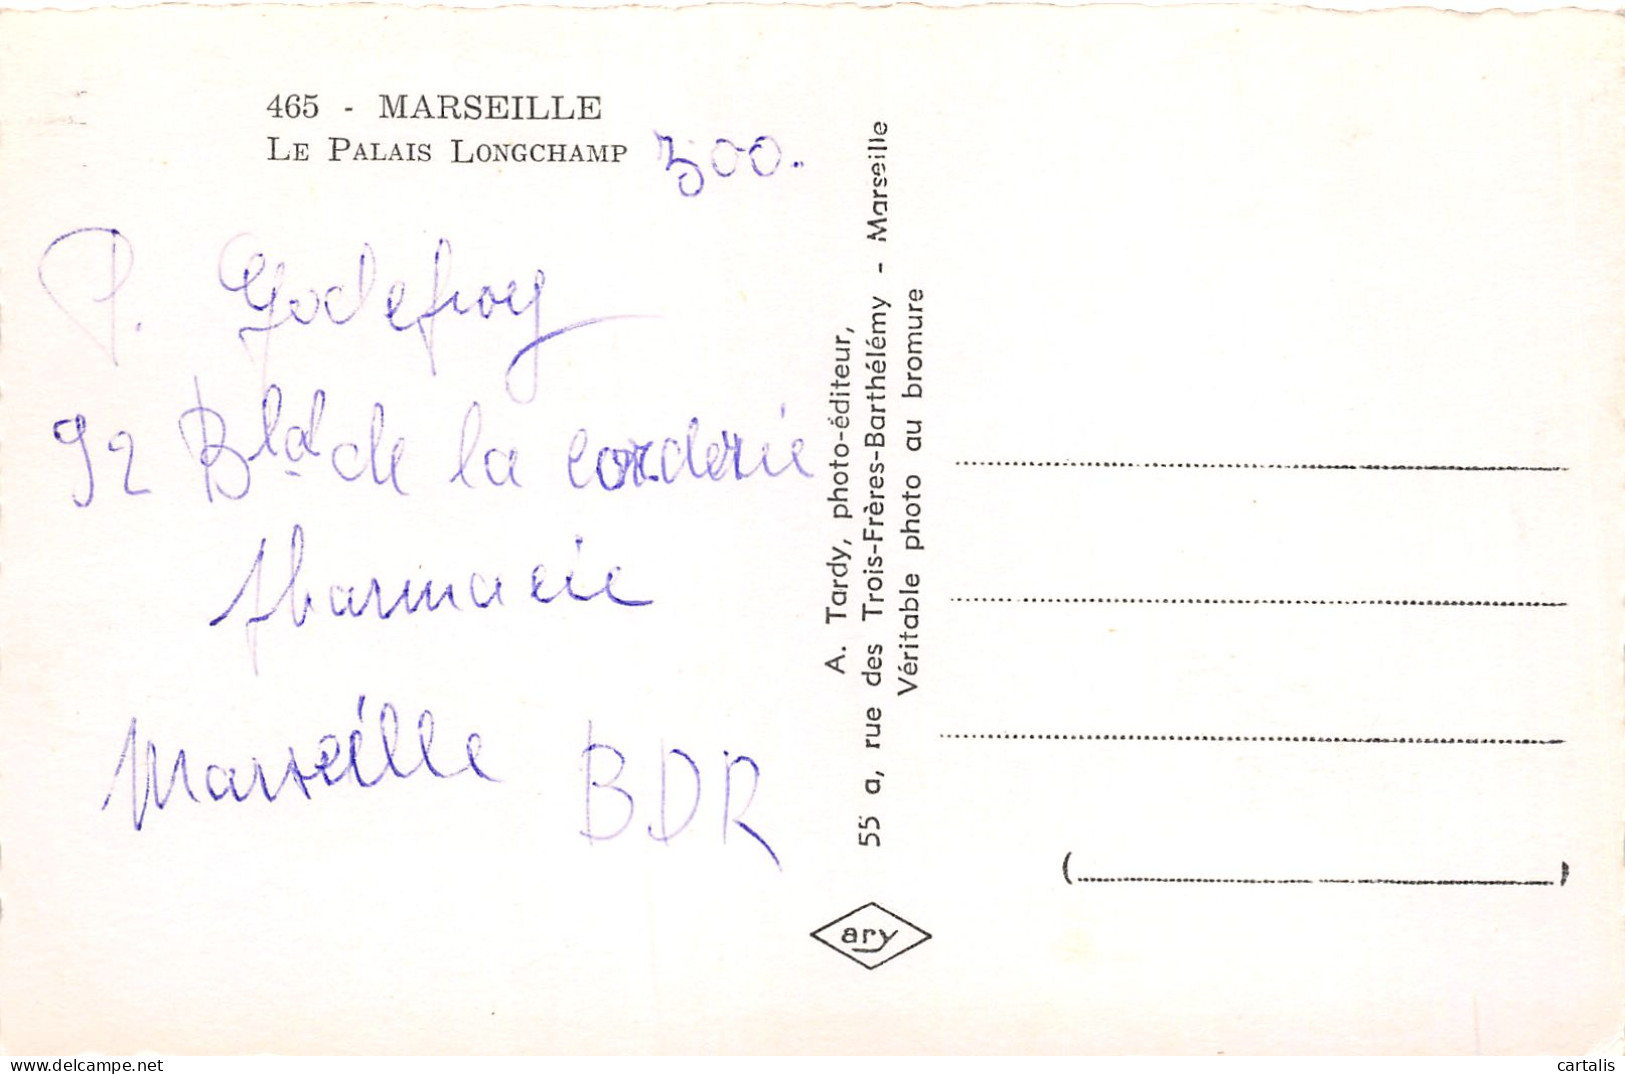 465 - MARSEILLE
LE PALAIS LONGCHAMP
300.
P. Godefroy
92 Bld de la corderie
Pharmacie
Marseille BDR
A. Tardy, photo-éditeur,
55 a, rue des Trois-Frères-Barthélémy - Marseille
Véritable photo au bromure
ary
delcampe.net
cartalis